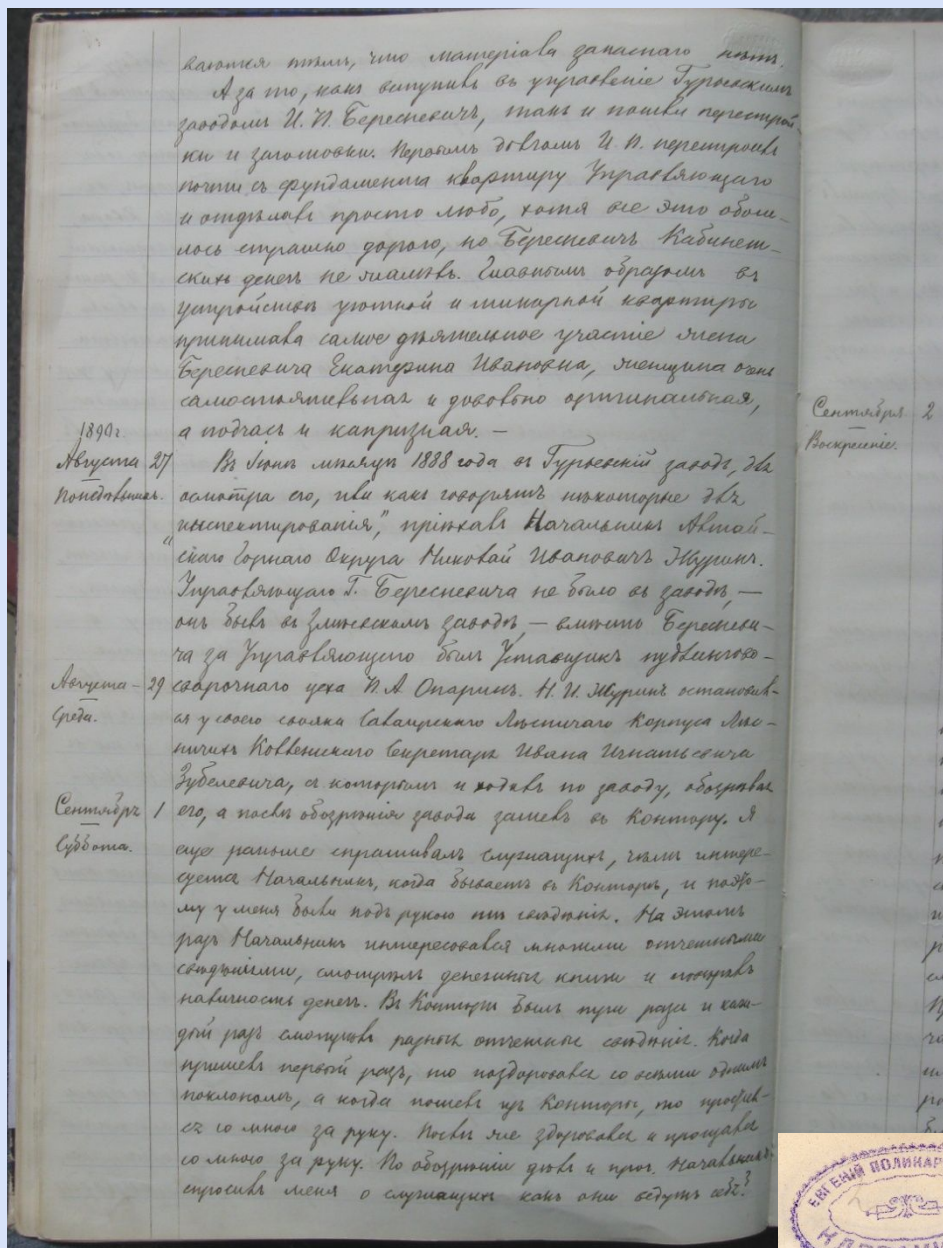 ваются тѣмъ, что матеріала запаснаго нѣтъ.
А за то, какъ вступилъ въ управленіе Гурьевскимъ
заводомъ И. П. Бересневичъ, такъ и пошли перестрой-
ки и заготовки. Первымъ долгомъ И. П. перестроилъ
почти съ фундамента квартиру Управляющаго
и отдѣлалъ просто любо, хотя все это обош-
лось страшно дорого, но Бересневичъ Кабинет-
скихъ денегъ не жалѣлъ. Главнымъ образомъ въ
устройствѣ уютной и шикарной квартиры
принимала самое дѣятельное участіе жена
Бересневича Екатерина Ивановна, женщина очень
самостоятельная и довольно оригинальная,
а подчасъ и капризная. —
1890 г.
Августа 27
Понедѣльникъ.
Въ Іюнѣ мѣсяцѣ 1888 года въ Гурьевскій заводъ, для
осмотра его, или какъ говорятъ нѣкоторые для
„инспектированія", пріѣхалъ Начальникъ Алтай-
скаго Горнаго Округа Николай Ивановичъ Журинъ.
Управляющаго Г. Бересневича не было въ заводѣ, —
онъ былъ въ Змѣевскомъ заводѣ, — вмѣсто Бересневи-
ча за Управляющаго былъ Уставщикъ пудлингово-
Августа – 29
Среда.
сварочнаго цеха П. А. Опаринъ. Н. И. Журинъ остановил-
ся у своего свояка Салаирскаго Лѣсничаго Корпуса Лѣс-
ничихъ Коллежскаго Секретаря Ивана Игнатьевича
Зубелевича, съ которымъ и ходилъ по заводу, обозрѣвая
Сентябрь 1
Суббота.
его, а послѣ обозрѣнія завода зашелъ въ Контору. Я
еще раньше спрашивалъ служащихъ, чѣмъ интере-
суется Начальникъ, когда бываетъ въ Конторѣ, и поэто-
му у меня были подъ рукою тѣ свѣдѣнія. На этотъ
разъ Начальникъ интересовался многими отчетными
свѣдѣніями, смотрѣлъ денежныя книги и повѣрялъ
наличность денегъ. Въ Конторѣ былъ три раза и каж-
дый разъ смотрѣлъ разныя отчетныя свѣдѣнія. Когда
пришелъ первый разъ, то поздоровался со всѣми однимъ
поклономъ, а когда пошелъ изъ Конторы, то простил-
ся со мною за руку. Послѣ же здоровался и прощался
со мною за руку. По обозрѣніи дѣлъ и проч. Начальникъ
спросилъ меня о служащихъ какъ они ведутъ себя?
Сентября 2
Воскресеніе.
ЕВГЕНІЙ ПОЛИКАР